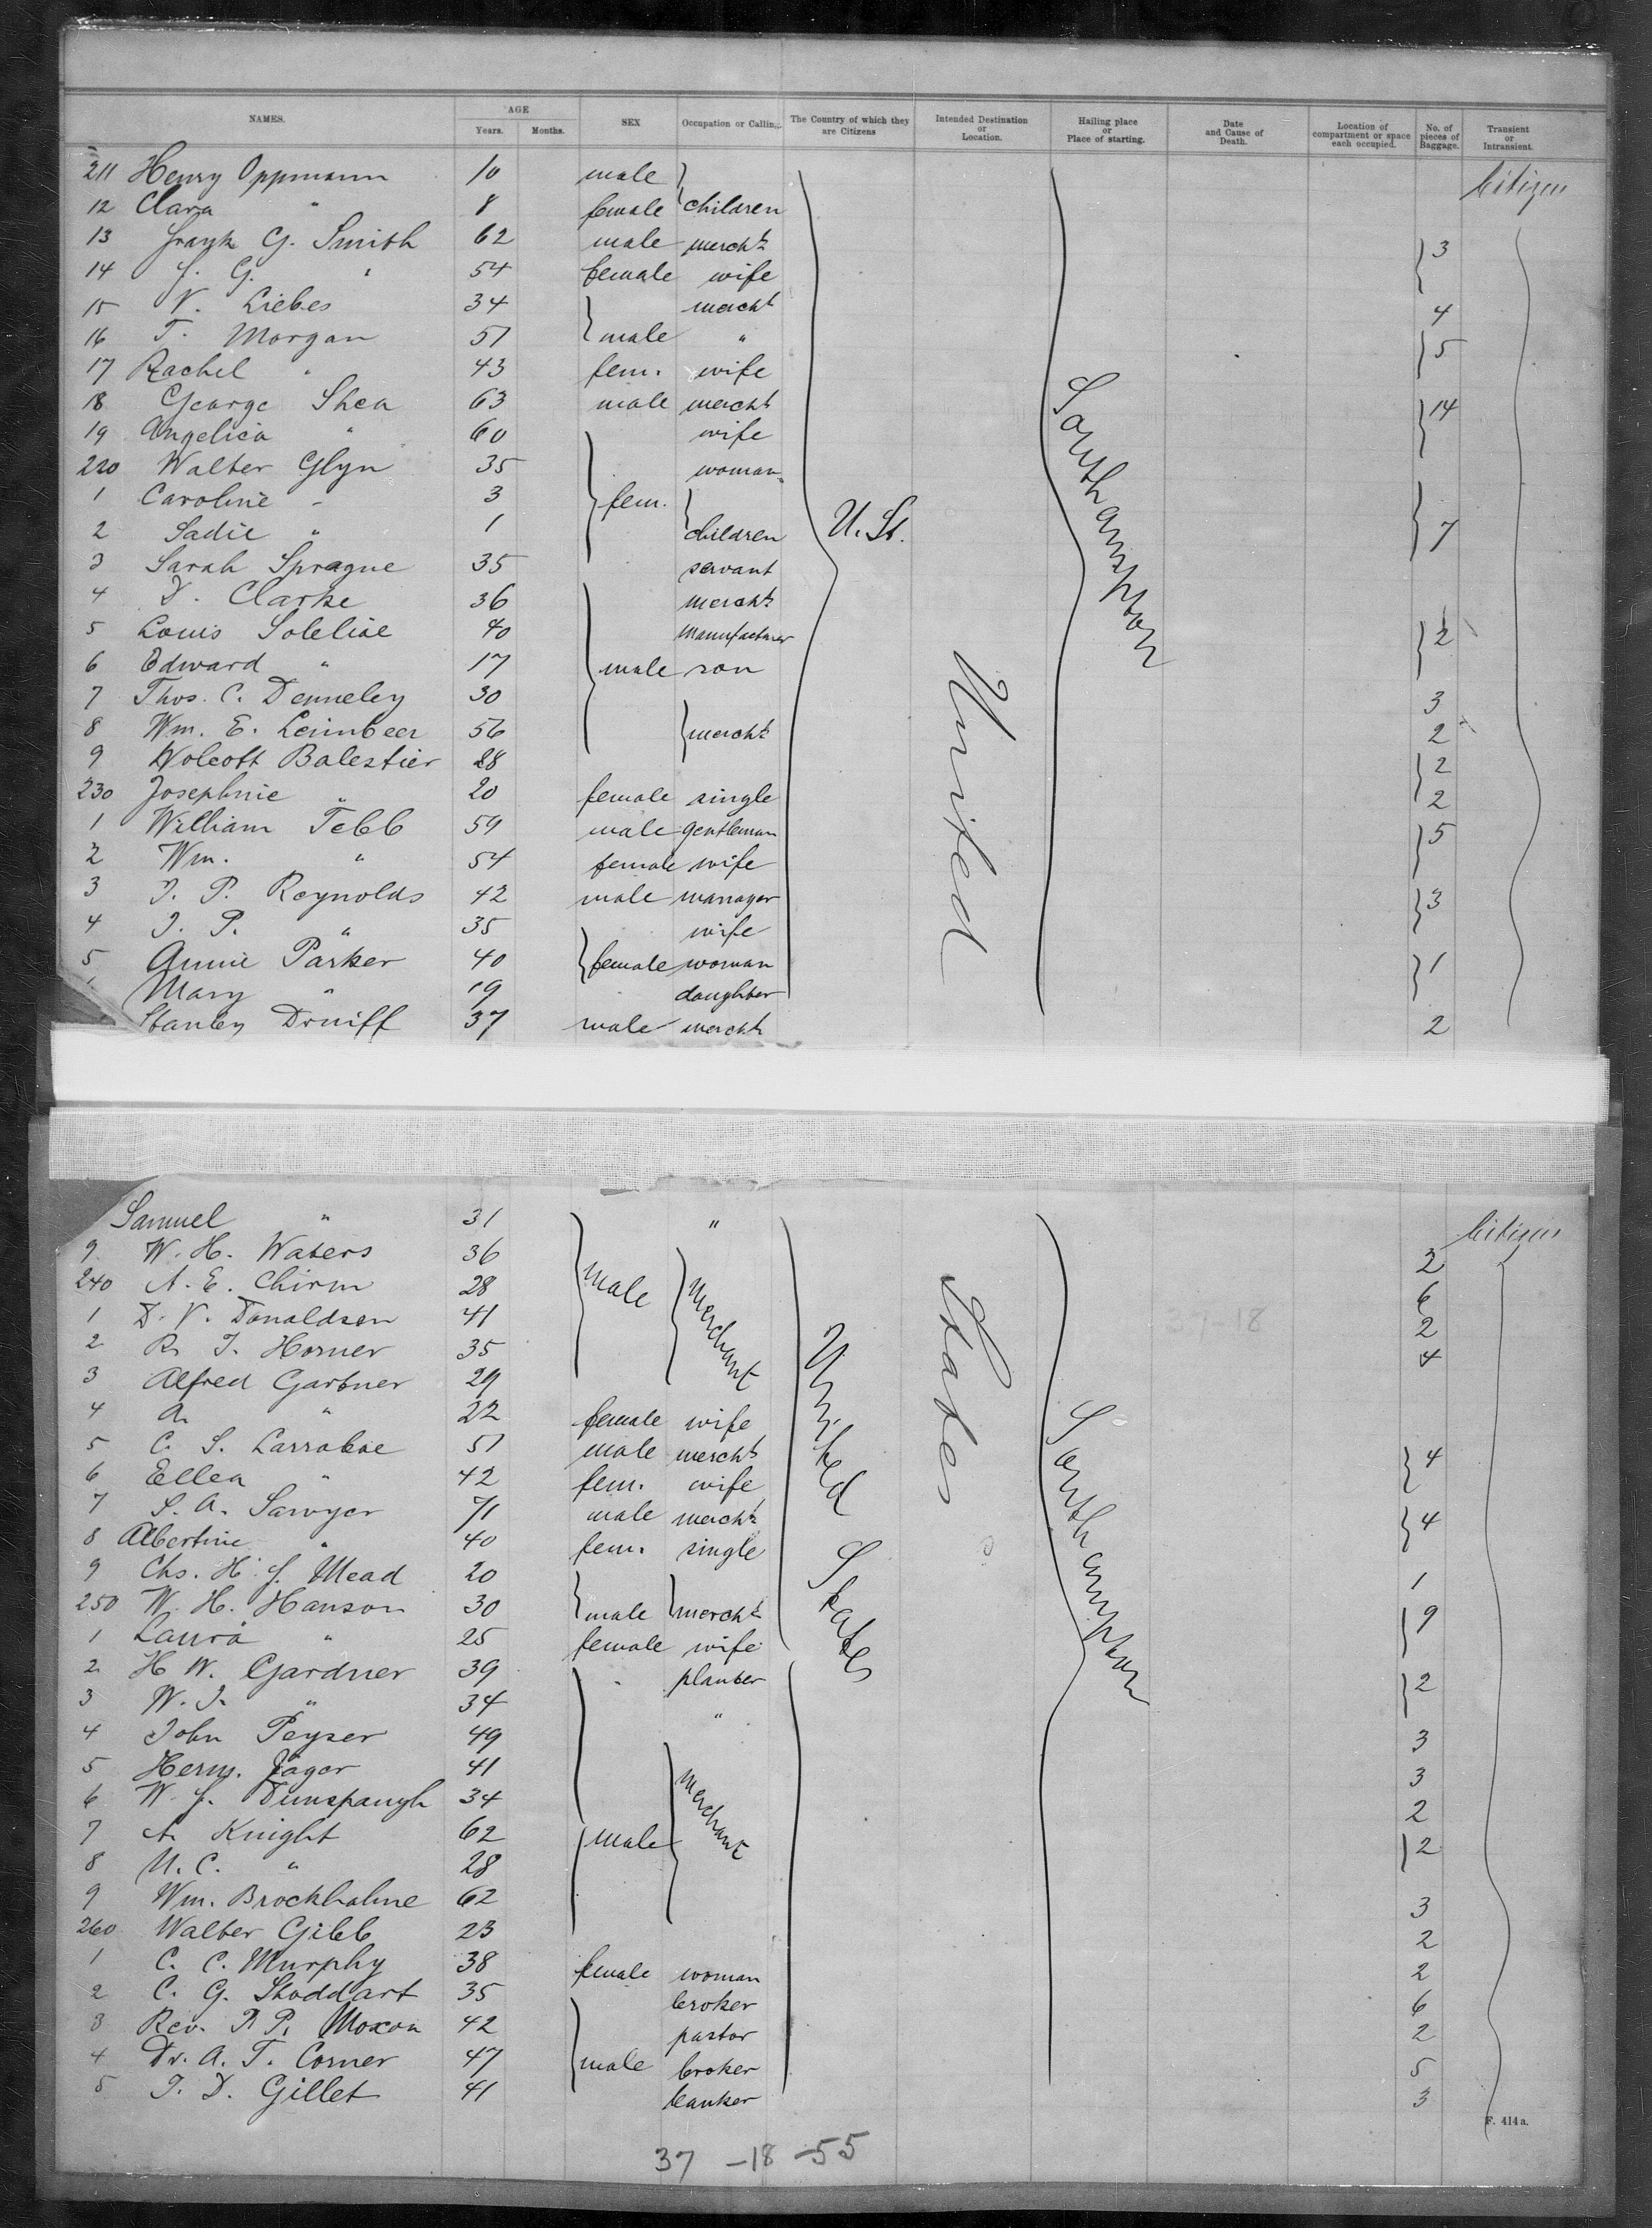 NAMES. AGE Years. Months. SEX Occupation or Calling. The Country of which they are Citizens Intended Destination or Location. Hailing place or Place of starting. Date and Cause of Death. Location of compartment or space each occupied. No. of pieces of Baggage. Transient or Intransient.
211 Henry Oppmann 10 male Citizen
12 Clara " 8 female children
13 Frank G. Smith 62 male mercht 3
14 F. G. " 54 female wife
15 V. Liebes 34 mercht 4
16 T. Morgan 51 male " 5
17 Rachel " 43 fem. wife
18 George Shea 63 male mercht 14
19 Angelica " 60 wife
220 Walter Glyn 35 woman
1 Caroline " 3 fem.
2 Sadie " 1 children U. St. 7
3 Sarah Sprague 35 servant
4 D. Clarke 36 mercht
5 Louis Soleliac 40 manufacturer 2
6 Edward " 17 male son Southampton
7 Thos. C. Denneley 30 3
8 Wm. E. Leimbeer 56 mercht 2
9 Wolcott Balestier 28 2
230 Josephine " 20 female single 2
1 William Tebb 59 male gentleman 5
2 Wm. " 54 female wife United
3 J. P. Reynolds 42 male manager 3
4 J. P. " 35 wife
5 Annie Parker 40 female woman 1
Mary " 19 daughter
Stanley Druiff 37 male mercht 2
Samuel " 31 " Citizen
9 W. H. Waters 36 2
240 A. E. Chirm 28 male Merchant 6
1 D. V. Donaldson 41 2 37-18
2 R. J. Horner 35 4
3 Alfred Gartner 29
4 A. " 22 female wife States
5 C. S. Larrabee 51 male mercht 4
6 Ellen " 42 fem. wife
7 S. A. Sawyer 71 male mercht 4
8 Albertine " 40 fem. single
9 Chs. H. F. Mead 20 1
250 W. H. Hanson 30 male mercht United States Southampton 9
1 Laura " 25 female wife
2 H W. Gardner 39 planter 2
3 W. J. " 34 "
4 John Peyser 49 3
5 Herm. Jager 41 3
6 W. F. Dunspaugh 34 Merchant 2
7 A. Knight 62 male 2
8 U. C. " 28
9 Wm. Brockhalme 62 3
260 Walter Gibb 23 2
1 C. C. Murphy 38 female woman 2
2 C. G. Stoddart 35 broker 6
3 Rev. P. P. Moxon 42 pastor 2
4 Dr. A. T. Corner 47 male broker 5
5 J. D. Gillet 41 banker 3
F. 414a.
37 -18 -55